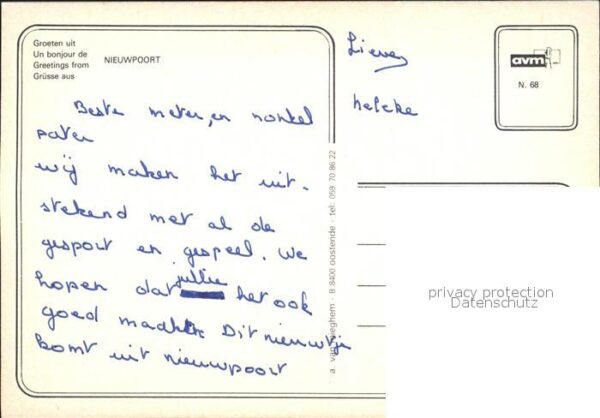 Groeten uit
Un bonjour de
Greetings from
Grüsse aus
NIEUWPOORT
Beste meter, en nonkel
pater
wij maken het uit-
stekend met al de
gesport en gespeel. We
hopen dat jullie het ook
goed maakt. Dit nieuwtje
komt uit nieuwpoort
Lieven
heleke
avm
N. 68
a. van eeghem - B 8400 oostende - tel: 059 70 86 22
privacy protection
Datenschutz